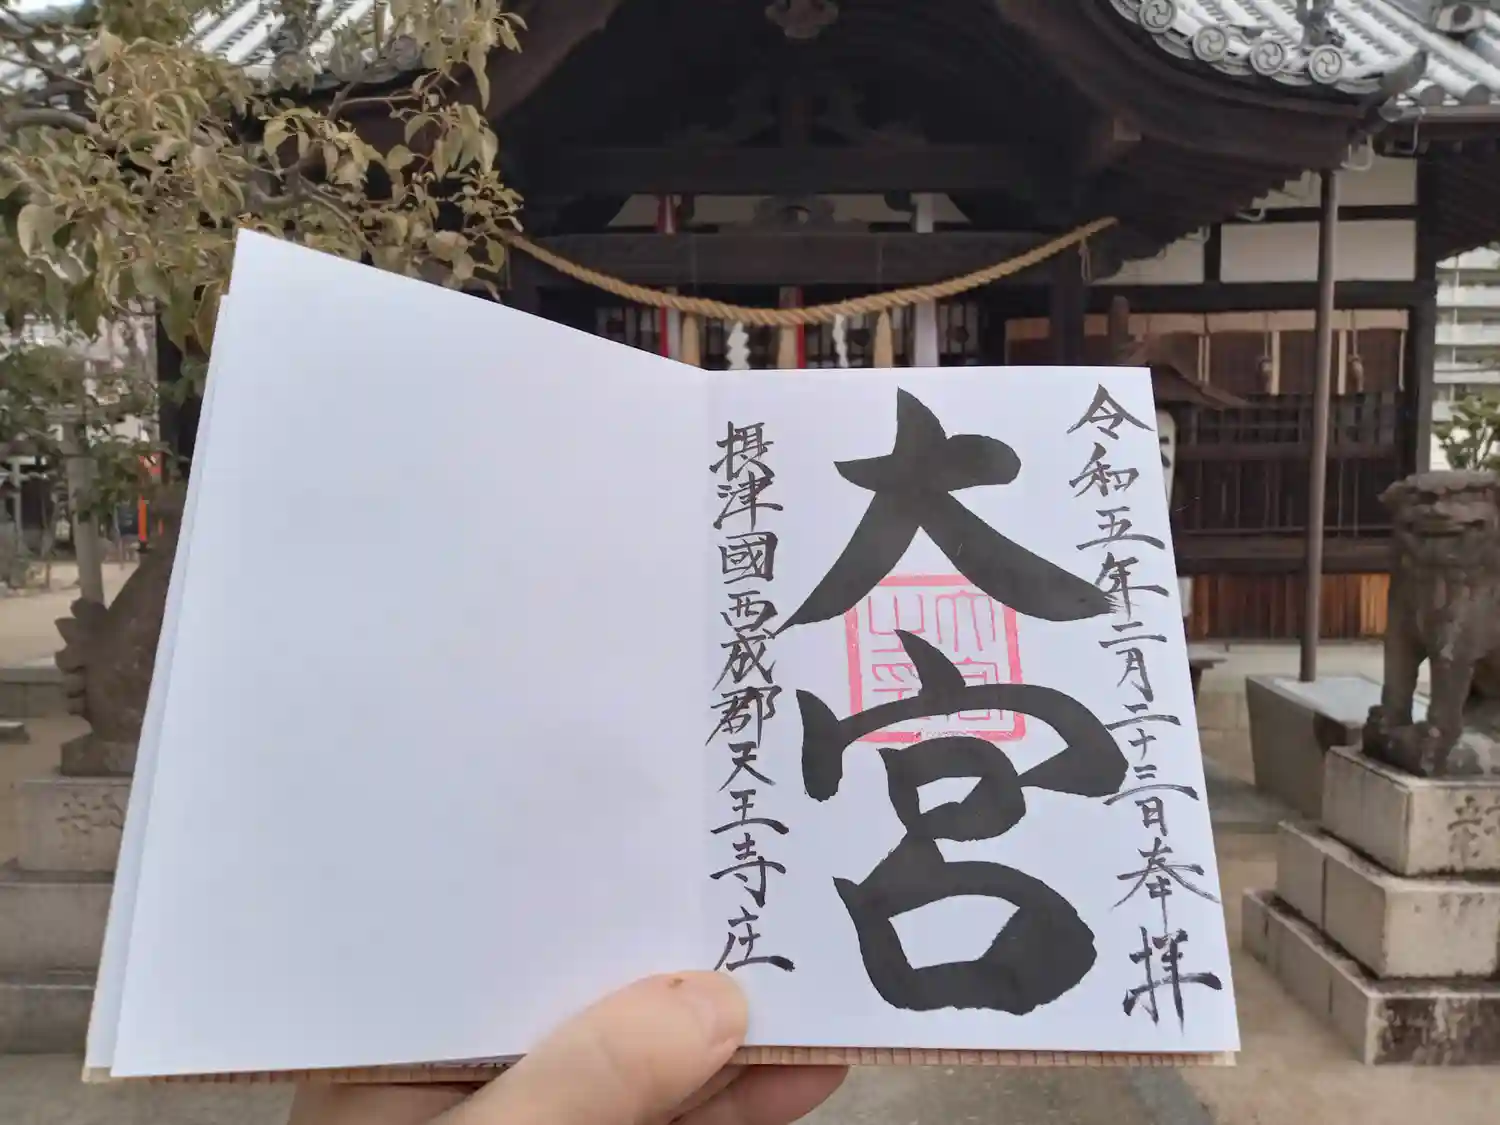 令和五年二月二十三日奉拝
大宮
大宮
之印
摂津國西成郡天王寺庄